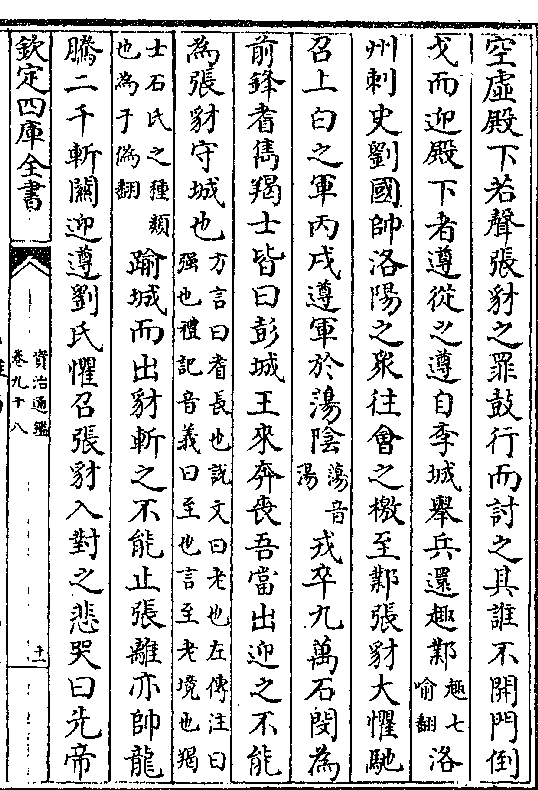 空虛殿下若聲張豺之罪鼓行而討之其誰不開門倒
戈而迎殿下者遵從之遵自李城舉兵還趣鄴趣七喻翻洛
州刺史劉國帥洛陽之衆往會之檄至鄴張豺大懼馳
召上白之軍丙戌遵軍於蕩陰蕩音湯戎卒九萬石閔為
前鋒耆儁羯士皆曰彭城王來奔喪吾當出迎之不能
為張豺守城也方言曰耆長也說文曰老也左傳注曰强也禮記音義曰至也言至老境也羯
士石氏之種類也為于偽翻踰城而出豺斬之不能止張離亦帥龍
騰二千斬關迎遵劉氏懼召張豺入對之悲哭曰先帝
欽定四庫全書
資治通鑑
卷九十八
十一